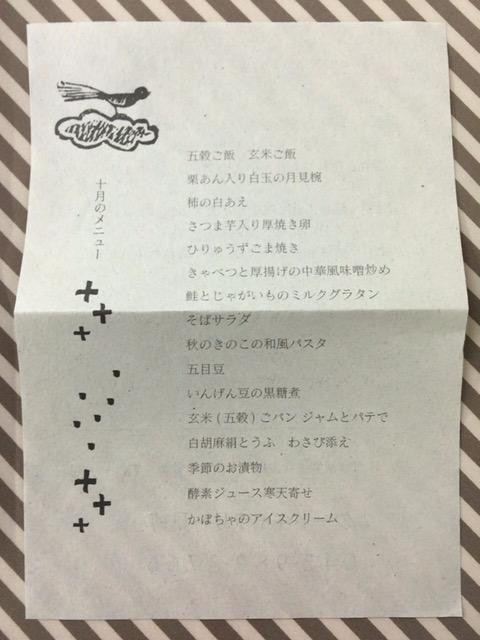 十月のメニュー
五穀ご飯　玄米ご飯
栗あん入り白玉の月見椀
柿の白あえ
さつま芋入り厚焼き卵
ひりゅうずごま焼き
きゃべつと厚揚げの中華風味噌炒め
鮭とじゃがいものミルクグラタン
そばサラダ
秋のきのこの和風パスタ
五目豆
いんげん豆の黒糖煮
玄米(五穀)ごパン ジャムとパテで
白胡麻絹とうふ　わさび添え
季節のお漬物
酵素ジュース寒天寄せ
かぼちゃのアイスクリーム